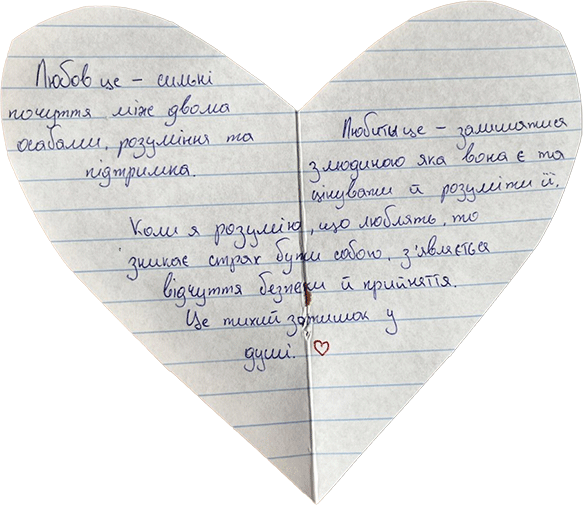 Любов це – сильні
почуття між двома
особами, розуміння та
підтримка.
Любити це – залишатися
з людиною яка вона є та
цінувати й розуміти її.
Коли я розумію, що люблять, то
зникає страх бути собою, з'являється
відчуття безпеки й прийняття.
Це тихий затишок у
душі.